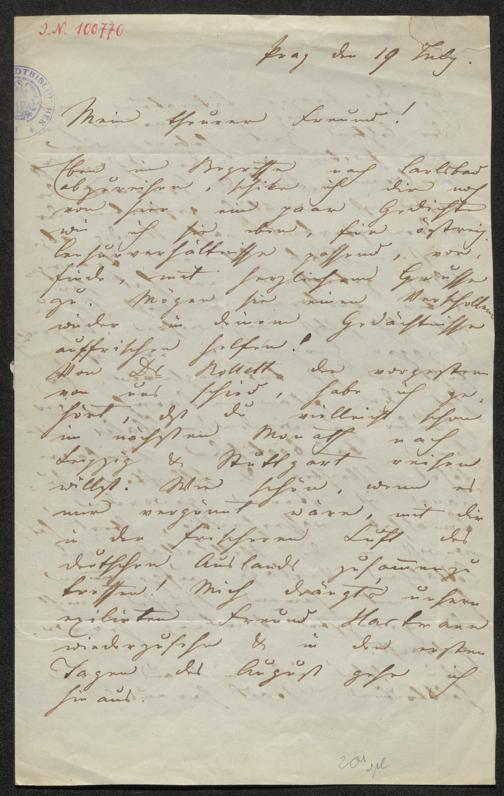 J.N. 100770
Prag den 19 July.
Mein theurer Freund!
Eben im Begriffe nach Carlsbad
abzureisen, schicke ich dir noch
von hier ein paar Gedichte
wie ich sie eben, für östreich.
Censurverhältnisse passend, vor-
finde, mit herzlichem Gruße
zu. Mögen sie einen Verschollenen
wieder in deinem Gedächtnisse
auffrischen helfen!
Von Dr Rollett der vorgestern
von uns schied, habe ich ge-
hört, daß du vielleicht schon
im nächsten Monath nach
Leipzig & Stuttgart reisen
willst. Wie schön, wenn es
mir vergönnt wäre, mit dir
in der frischeren Luft des
deutschen Auslands zusammenzu
treffen! Mich drängt's unsern
exilirten Freund Hartmann
wiederzusehen & in den ersten
Tagen des August gehe ich
hinaus.